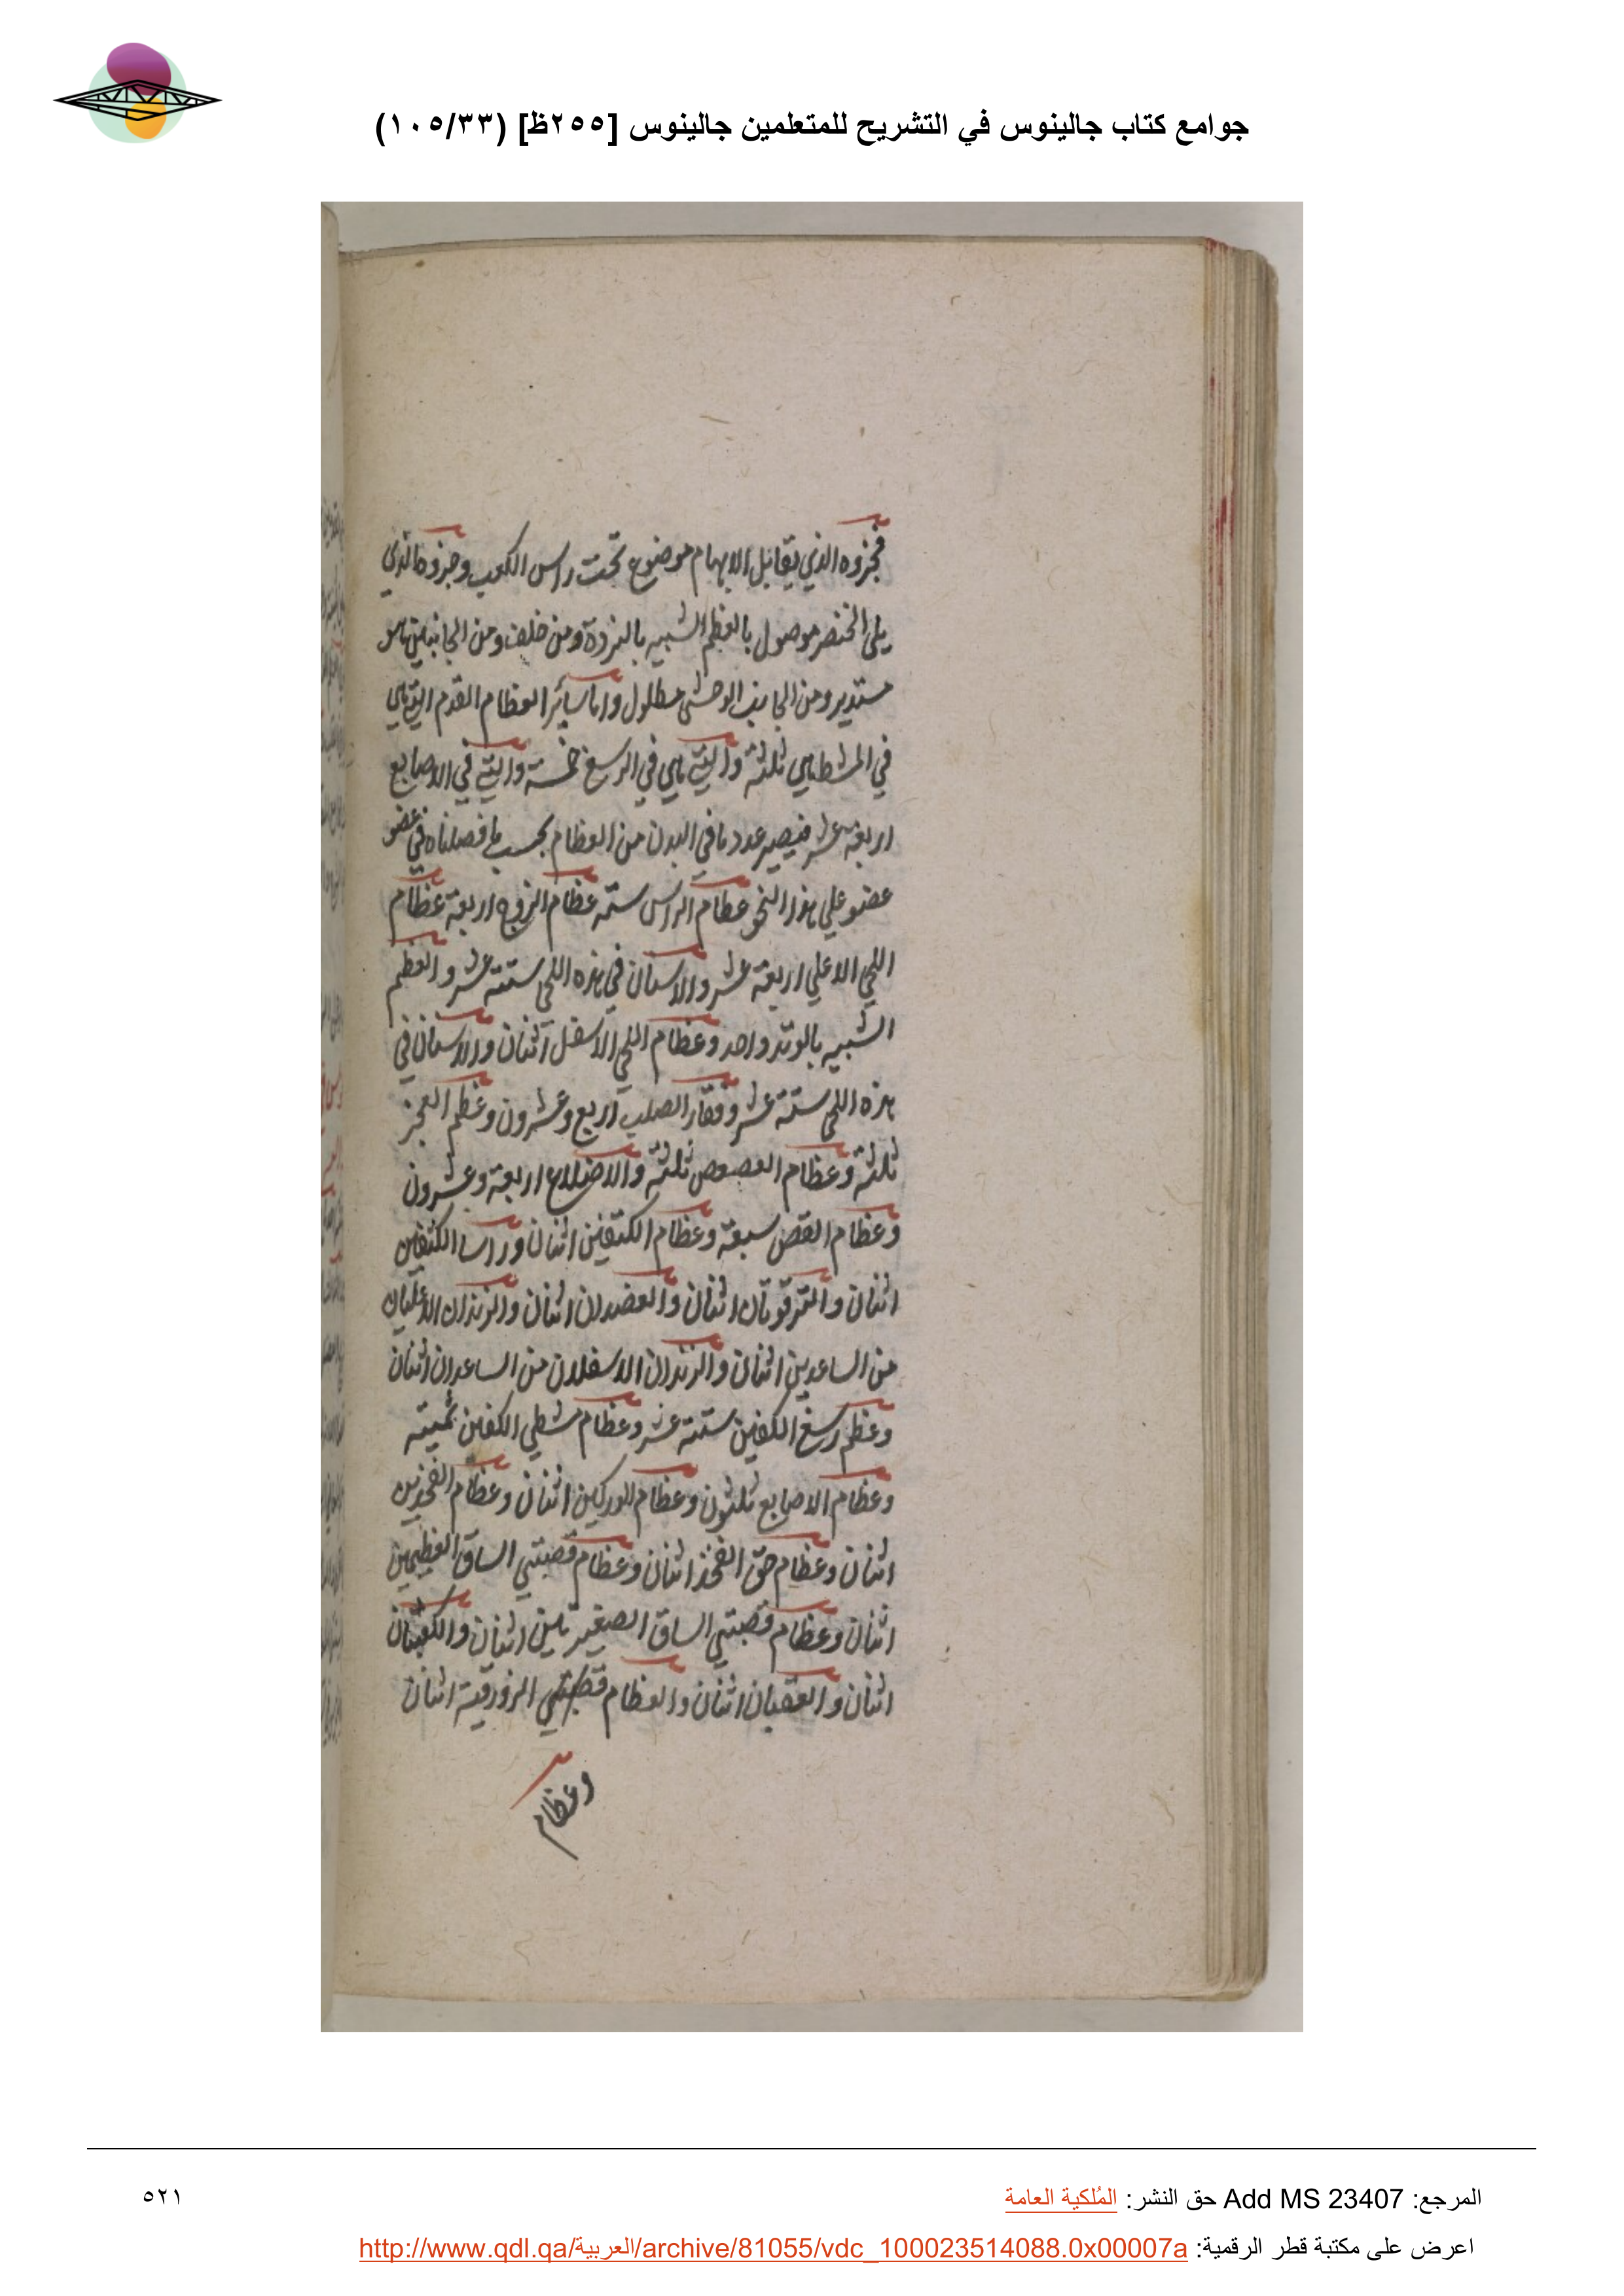 جوامع كتاب جالينوس في التشريح للمتعلمين جالينوس [٢٥٥ظ] (١٠٥/٣٣)
فجزوه الذي يقابل الابهام موضوع تحت راس الكعب وجزوه الذي
يلي الخنصر موصول بالعظم الشبيه بالنردة ومن خلف ومن الجانبين هو
مستدير ومن الجانب الوحشي مطلول واما سائر العظام القدم التي هي
في المشط هي ثلثة والتي هي في الرسغ خمسة والتي في الاصابع
اربعة عشر فيصير عدد ما في البدن من العظام بحسب ما فصلناه في عضو
عضو علي هذا النحو عظام الراس ستة عظام الزوج اربعة عظام
اللحي الاعلي اربعة عشر والاسنان في هذه اللحي ستة عشر والعظم
الشبيه بالوتد واحد وعظام اللحي الاسفل اثنان والاسنان في
هذه اللحي ستة عشر وفقار الصلب اربع وعشرون وعظم العجز
ثلثة وعظام العصعص ثلثة والاضلاع اربعة وعشرون
وعظام القص سبعة وعظام الكتفين اثنان وراسا الكتفين
اثنان والترقوتان اثنان والعضدان اثنان والزندان الاعليان
من الساعدين اثنان والزندان الاسفلان من الساعدان اثنان
وعظم رسغ الكفين ستة عشر وعظام مشطي الكفين ثمنية
وعظام الاصابع ثلثون وعظام الوركين اثنان وعظام الفخذين
اثنان وعظام حق الفخذ اثنان وعظام قصبتي الساق العظيمين
اثنان وعظام قصبتي الساق الصغيرتين اثنان والكعبتان
اثنان والعقبان اثنان والعظام الزورقية اثنان
وعظام
المرجع: Add MS 23407 حق النشر: المُلكية العامة
٥٢١
اعرض على مكتبة قطر الرقمية: http://www.qdl.qa/العربية/archive/81055/vdc_100023514088.0x00007a